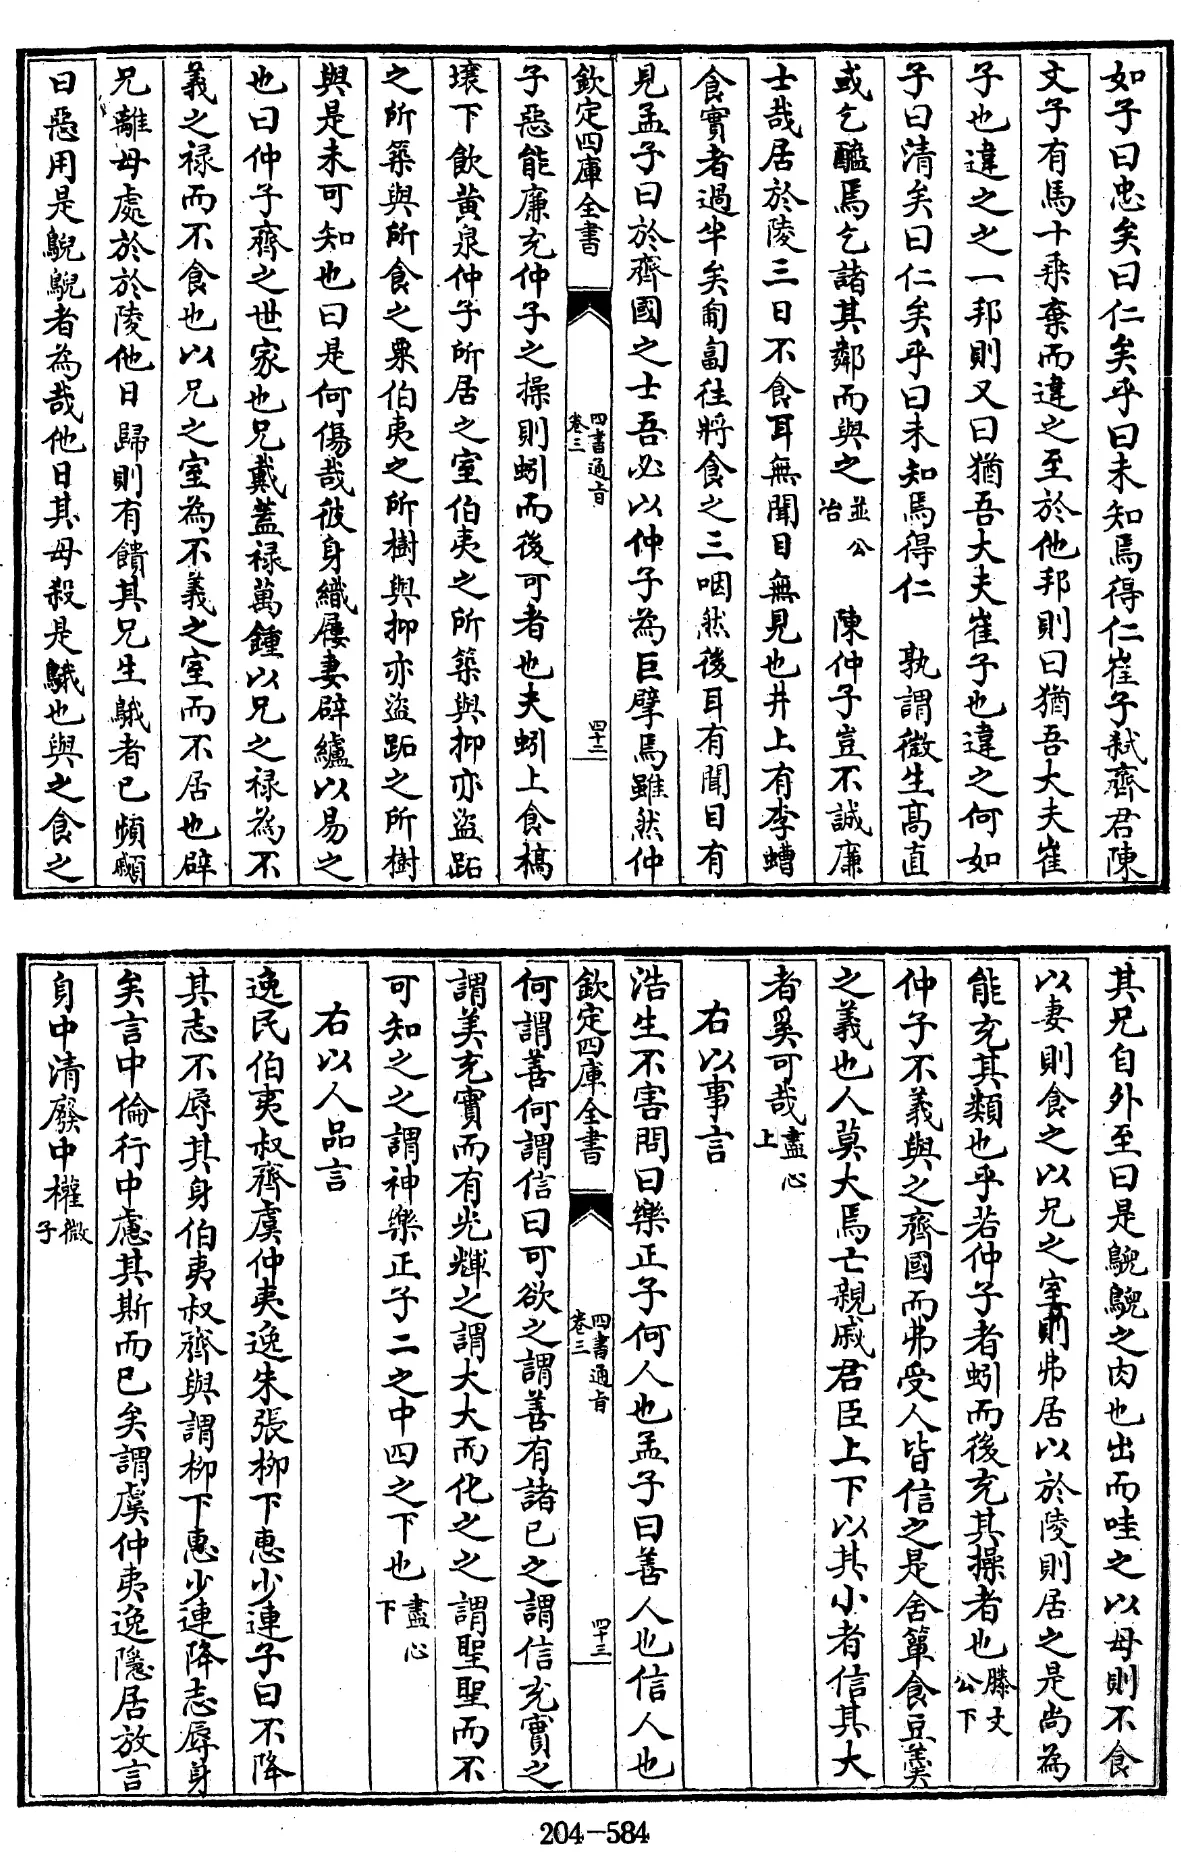 如子曰忠矣曰仁矣乎曰未知焉得仁崔子弑齊君陳
文子有馬十乘棄而違之至於他邦則曰猶吾大夫崔
子也違之之一邦則又曰猶吾大夫崔子也違之何如
子曰清矣曰仁矣乎曰未知焉得仁 孰謂微生髙直
或乞醯焉乞諸其鄰而與之並公冶 陳仲子豈不誠廉
士哉居於陵三日不食耳無聞目無見也井上有李螬
食實者過半矣匍匐往將食之三咽然後耳有聞目有
見孟子曰於齊國之士吾必以仲子為巨擘焉雖然仲
欽定四庫全書 四書通旨卷三 四十二
子惡能廉充仲子之操則蚓而後可者也夫蚓上食槁
壤下飲黄泉仲子所居之室伯夷之所築與抑亦盜跖
之所築與所食之粟伯夷之所樹與抑亦盜跖之所樹
與是未可知也曰是何傷哉彼身織屨妻辟纑以易之
也曰仲子齊之世家也兄戴蓋禄萬鍾以兄之禄為不
義之禄而不食也以兄之室為不義之室而不居也辟
兄離母處於於陵他日歸則有饋其兄生鵝者已頻顣
曰惡用是鶃鶃者為哉他日其母殺是鵝也與之食之
其兄自外至曰是鶃鶃之肉也出而哇之以母則不食
以妻則食之以兄之室則弗居以於陵則居之是尚為
能充其類也乎若仲子者蚓而後充其操者也滕文公下
仲子不義與之齊國而弗受人皆信之是舍簞食豆羹
之義也人莫大焉亡親戚君臣上下以其小者信其大
者奚可哉盡心上
右以事言
浩生不害問曰樂正子何人也孟子曰善人也信人也
欽定四庫全書 四書通旨卷三 四十三
何謂善何謂信曰可欲之謂善有諸已之謂信充實之
謂美充實而有光輝之謂大大而化之之謂聖聖而不
可知之之謂神樂正子二之中四之下也盡心下
右以人品言
逸民伯夷叔齊虞仲夷逸朱張柳下惠少連子曰不降
其志不辱其身伯夷叔齊與謂柳下惠少連降志辱身
矣言中倫行中慮其斯而已矣謂虞仲夷逸隱居放言
身中清廢中權微子
204-584